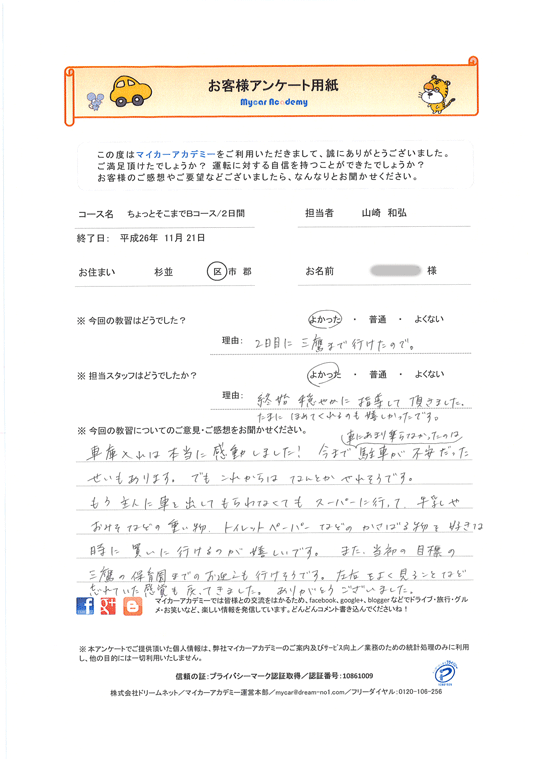 お客様アンケート用紙
Mycar Academy
この度はマイカーアカデミーをご利用いただきまして、誠にありがとうございました。
ご満足頂けたでしょうか？ 運転に対する自信を持つことができたでしょうか？
お客様のご感想やご要望などございましたら、なんなりとお聞かせください。
コース名 ちょっとそこまでBコース/2日間 担当者 山崎 和弘
終了日： 平成26年 11月 21日
お住まい 杉並 区 市 郡 お名前 様
※ 今回の教習はどうでした？ よかった ・ 普通 ・ よくない
理由： 2日目に三鷹まで行けたので。
※ 担当スタッフはどうでしたか？ よかった ・ 普通 ・ よくない
理由： 終始 穏やかに指導して頂きました。
たまにほめてくれるのも嬉しかったです。
※ 今回の教習についてのご意見・ご感想をお聞かせください。
車にあまり乗らなかったのは
車庫入れは本当に感動しました！ 今まで駐車が不安だった
せいもあります。でもこれからはなんとかやれそうです。
もう主人に車を出してもらわなくてもスーパーに行って、牛乳や
おみそなどの重い物、トイレットペーパーなどのかさばる物を好きな
時に買いに行けるのが嬉しいです。また、当初の目標の
三鷹の保育園までのお迎えも行けそうです。左右をよく見ることなど
忘れていた感覚も戻ってきました。ありがとうございました。
マイカーアカデミーでは皆様との交流をはかるため、facebook、google+、bloggerなどでドライブ・旅行・グルメ・お笑いなど、楽しい情報を発信しています。どんどんコメント書き込んでくださいね！
※ 本アンケートでご提供頂いた個人情報は、弊社マイカーアカデミーのご案内及びサービス向上／業務のための統計処理のみに利用
し、他の目的には一切利用いたしません。
信頼の証：プライバシーマーク認証取得／認証番号：10861009
株式会社ドリームネット／マイカーアカデミー運営本部／mycar@dream-no1.com／フリーダイヤル：0120-106-256